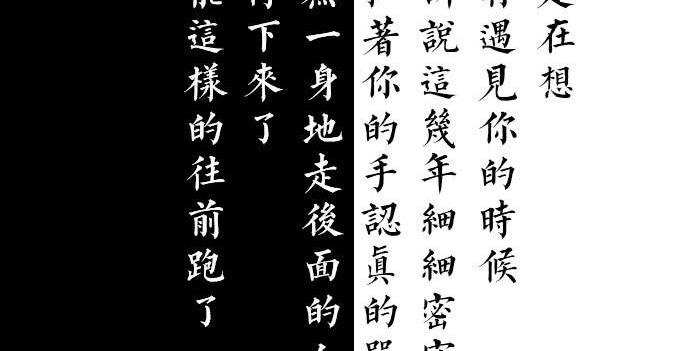 在想
遇見你的時候
說這幾年細細密
著你的手認真的
一身地走後面的
下來了
這樣的往前跑了